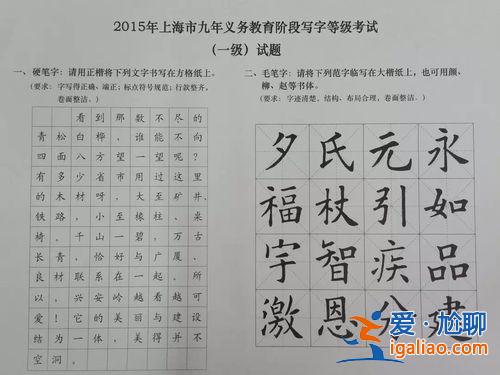 2015年上海市九年义务教育阶段写字等级考试
（一级）试题
一、硬笔字：请用正楷将下列文字书写在方格纸上。
（要求：字写得正确、端正；标点符号规范；行款整齐，
卷面整洁。）
看到那数不尽的
青松白桦，谁能不向
四面八方望一望呢？
有多少省市用过这里
的木材呀，大至矿井、
铁路，小至椽柱、桌
椅。千山一碧，万古
长青，恰好与广厦、
良材联系在一起。所
以，兴安岭越看越可
爱！它的美丽与建设
结为一体，美得并不
空洞。
二、毛笔字：请将下列范字临写在大楷纸上，也可用颜、
柳、赵等书体。
（要求：字迹清楚，结构、布局合理，卷面整洁。）
夕氏元永
福杖引如
宇智疾品
激恩分建
爱·尬聊
igaliao.com